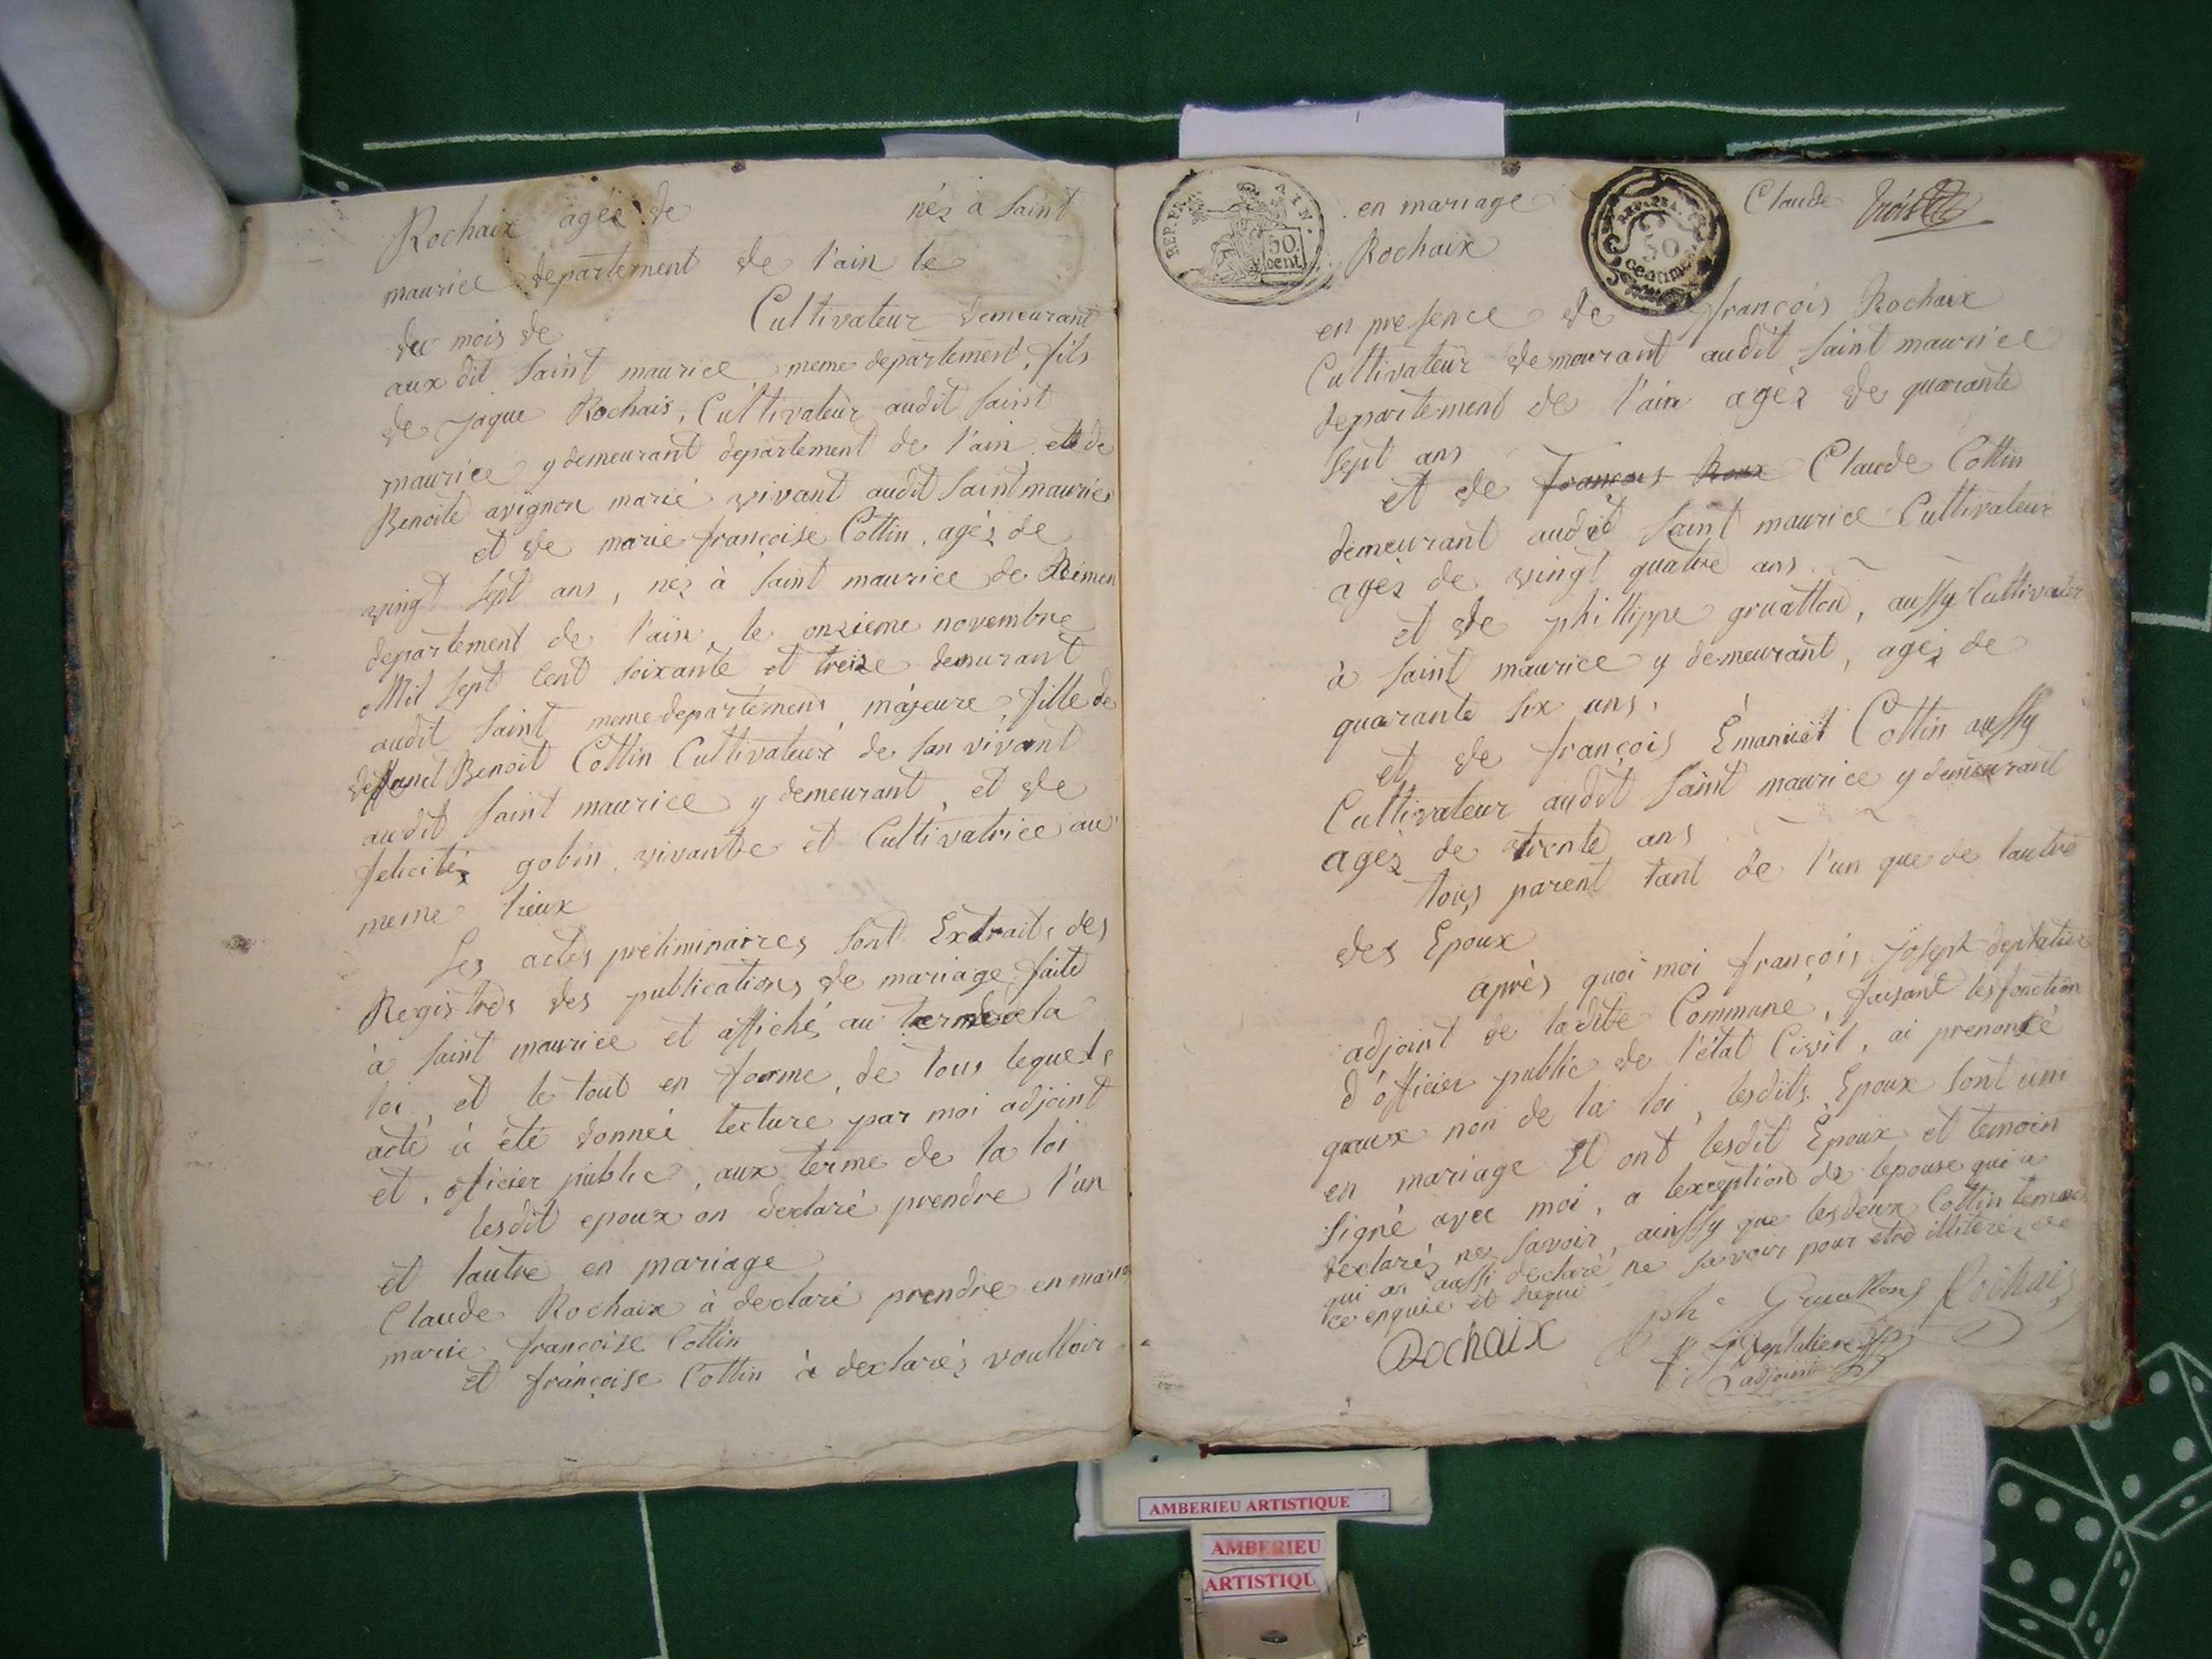 Rochaix agéé de nés à Saint
maurice departement de l'ain le
du mois de Cultivateur demeurant
aux dit Saint maurice meme departement, fils
de jaque Rochais, Cultivateur audit Saint
maurice y demeurant departement de l'ain et de
Benoite avignon marié vivant audit Saint maurice
et de marie françoise Cottin, agés de
vingt sept ans, nés à Saint maurice de Remen
departement de l'ain, le onzieme novembre
Mil sept Cent soixante et treize demurant
audit Saint meme departement, majeure, fille de
deffunct Benoit Cottin Cultivateur de son vivant
audit Saint maurice y demeurant, et de
felicités gobin vivante et Cultivatrice au
meme lieux
Les actes preliminaires sont Extraits des
Registres des publications de mariage faite
à Saint maurice et affiché au terme de la
loi, et le tout en forme, de tous lequels
acte à été donneé lecture par moi adjoint
et officier public, aux terme de la loi
lesdit epoux on declaré prendre l'un
et lautre en mariage
Claude Rochaix à declaré prendre en maria
marie françoise Cottin
et françoise Cottin à declarés voulloir
REP. FRA. 50 cent
en mariage Claude
REP. FRA. 50 centimes
Rochaix
en presence de françois Rochaix
Cultivateur demeurant audit Saint maurice
departement de l'ain agés de quarante
Sept ans
et de francois Roux Claude Cottin
demeurant audit Saint maurice Cultivateur
agés de vingt quatre ans
et de phillippe gruatton, aussy Cultivateur
à Saint maurice y demeurant, agés de
quarante six ans,
et de françois Émanuel Cottin aussy
Cultivateur audit Saint maurice y demeurant
agés de trente ans
tous parent tant de l'un que de lautre
des Epoux
après quoi moi françois joseph deplatiere
adjoint de ladite Commune, faisant les fonction
d'officier public de l'état Civil, ai prenoncé
quaux non de la loi, lesdits Epoux sont uni
en mariage Et ont lesdit Epoux et temoin
signé avec moi, a lexception de lepouse qui a
declarés ne savoir, ainssy que les deux Cottin temoin
qui on aussi declaré ne savoir pour etre illiterés de
ce enquie et requi
Rochaix phe Gruattons Rochais
f j Deplatiere
adjoint
AMBERIEU ARTISTIQUE
AMBERIEU
ARTISTIQU